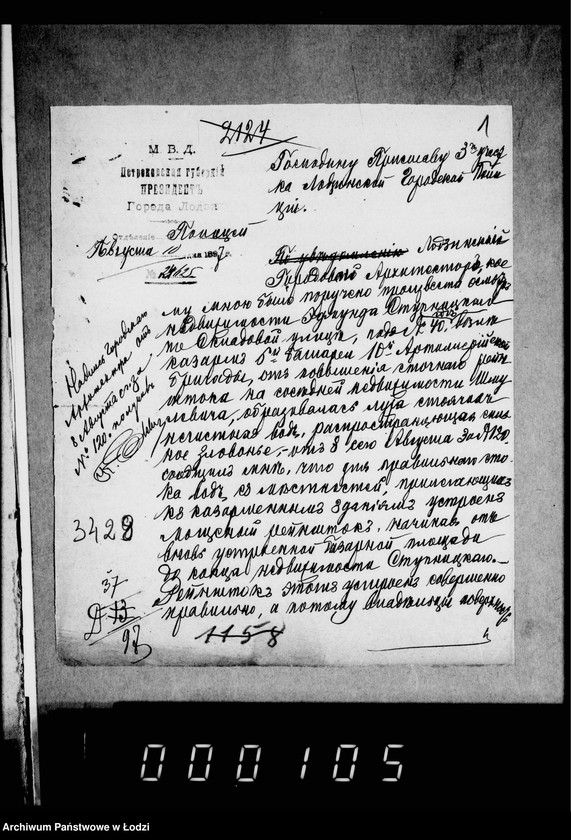 2124
1
М. В. Д.
Петроковская губернія
ПРЕЗИДЕНТЪ
Города Лодзи
Отдѣленіе Полицей
Августа 1897 г.
№ 24125
Господину Приставу 3го участ
ка Лодзинской Городской Поли
ціи.
По увѣдомленію Лодзинскій
Городовой Архитекторъ, кое
му мною было поручено произвести осмотръ
недвижимости Эдмунда Стульницкаго
по Складовой улицѣ, подъ № 40, возлѣ
казармъ 5й батареи 10й Артиллерійской
бригады, отъ повышенія сточнаго рейн
штока на сосѣдней недвижимости Шму
левича, образовалась лужа стоячей
нечистой воды, распространяющая силь
ное зловоніе, отъ 8 сего Августа за № 120
сообщилъ мнѣ, что для правильнаго сто
ка воды съ мѣстностей, прилегающихъ
къ казарменнымъ зданіямъ устроенъ
мощеный рейнштокъ, начиная отъ
вновь устроенной базарной площади
до конца недвижимости Стульницкаго.
Рейнштокъ этотъ устроенъ совершенно
правильно, а потому владѣльцы
Городскаго
Архитектора отъ
8 Августа с. года
№ 120.
3428
37
Д 13
97
1158
000105
Archiwum Państwowe w Łodzi